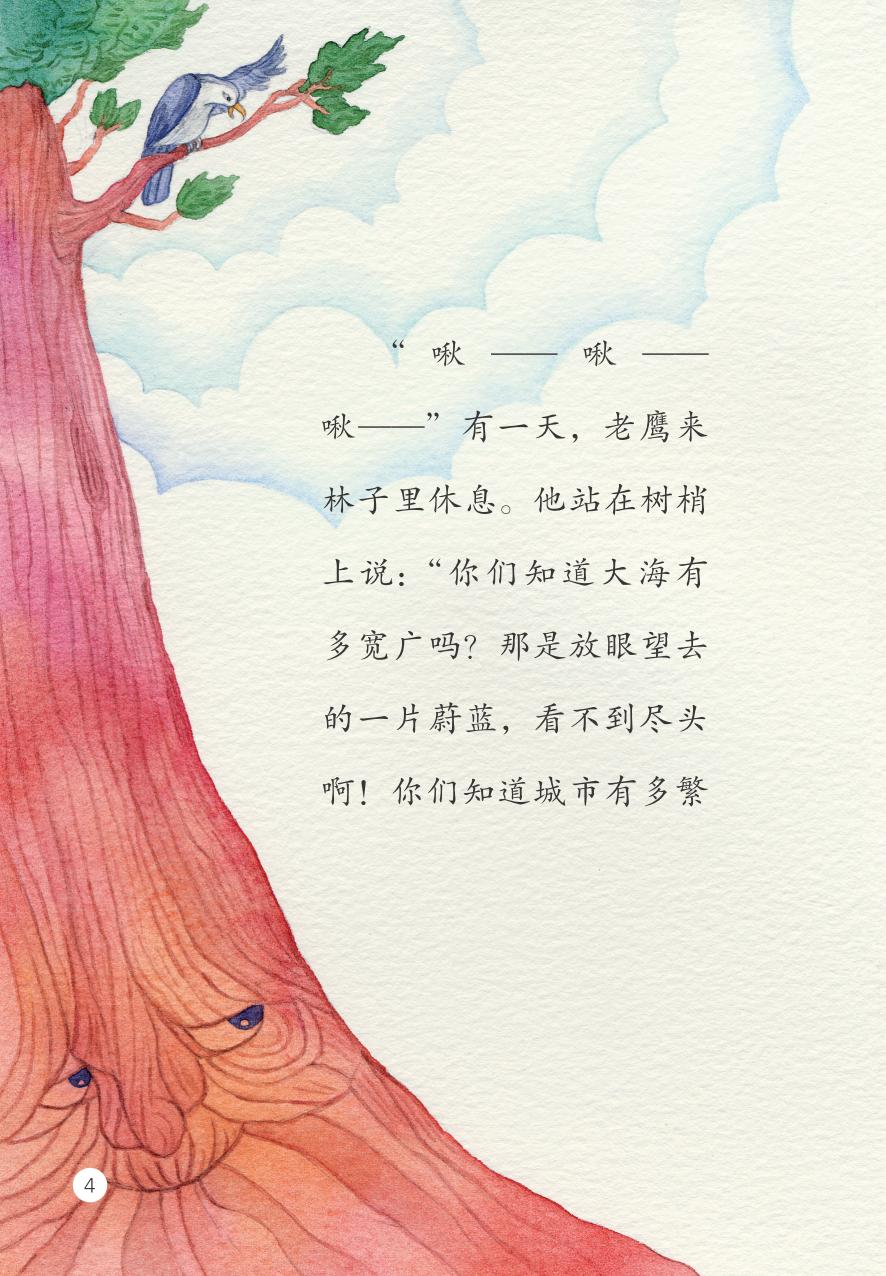 “啾——啾——
啾——”有一天，老鹰来
林子里休息。他站在树梢
上说：“你们知道大海有
多宽广吗？那是放眼望去
的一片蔚蓝，看不到尽头
啊！你们知道城市有多繁
4